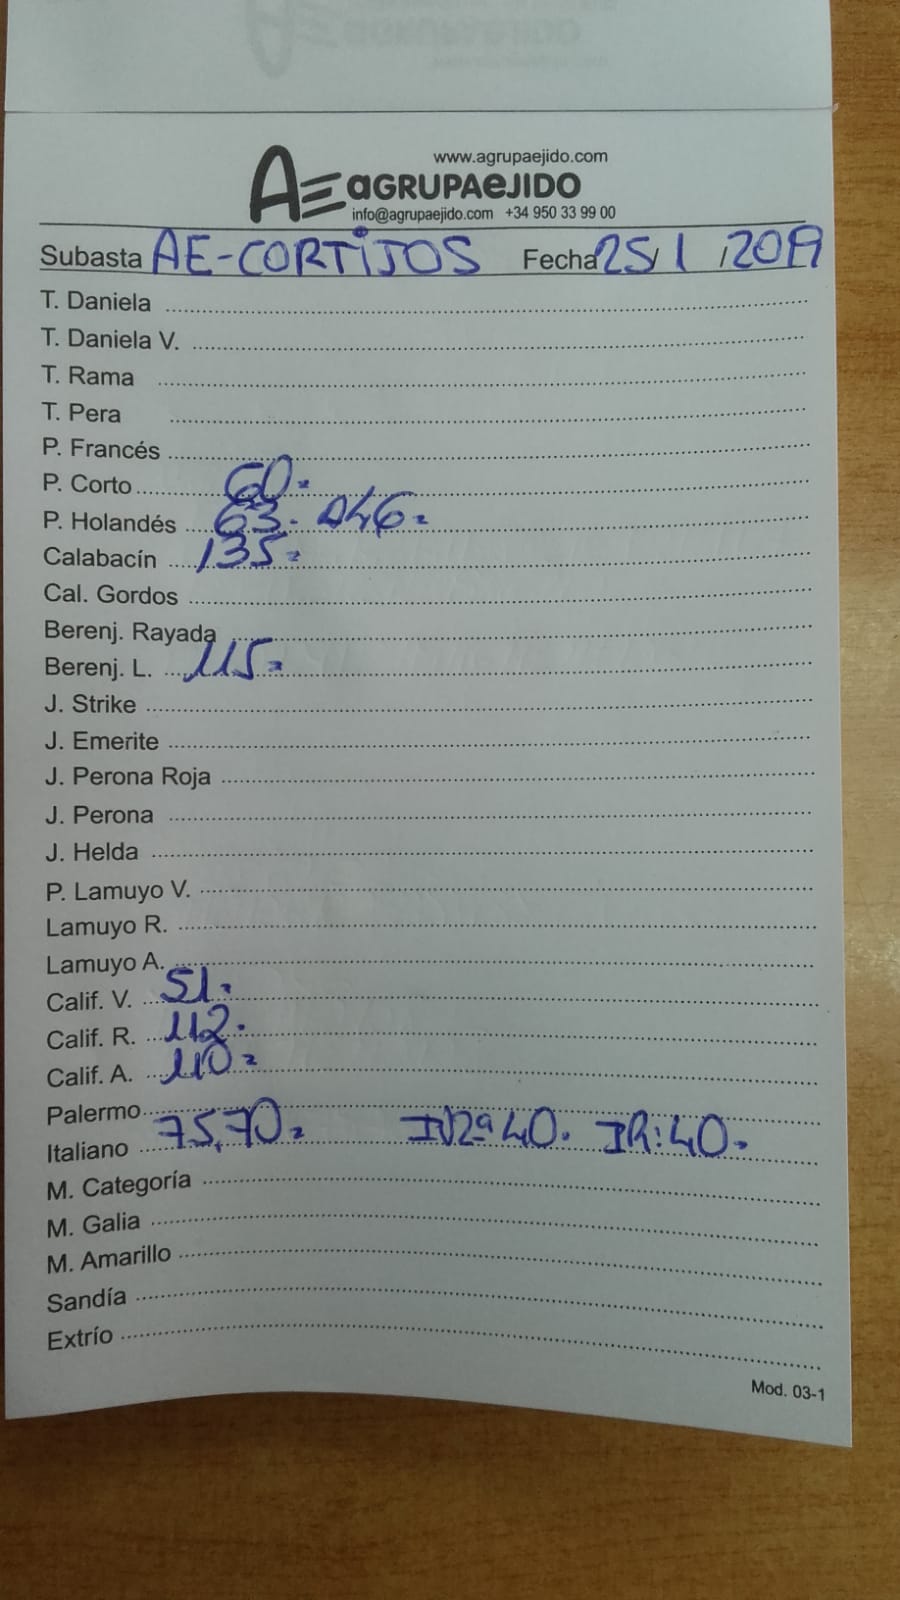 www.agrupaejido.com
AE aGRUPAeJIDO
info@agrupaejido.com +34 950 33 99 00
Subasta AE-CORTIJOS Fecha 25/1/2019
T. Daniela
T. Daniela V.
T. Rama
T. Pera
P. Francés
P. Corto 60=
P. Holandés 63= A46=
Calabacín 135=
Cal. Gordos
Berenj. Rayada
Berenj. L. 115=
J. Strike
J. Emerite
J. Perona Roja
J. Perona
J. Helda
P. Lamuyo V.
Lamuyo R.
Lamuyo A.
Calif. V. 51=
Calif. R. 112=
Calif. A. 110=
Palermo
Italiano 75,70= IV2ª40= IR:40=
M. Categoría
M. Galia
M. Amarillo
Sandía
Extrío
Mod. 03-1